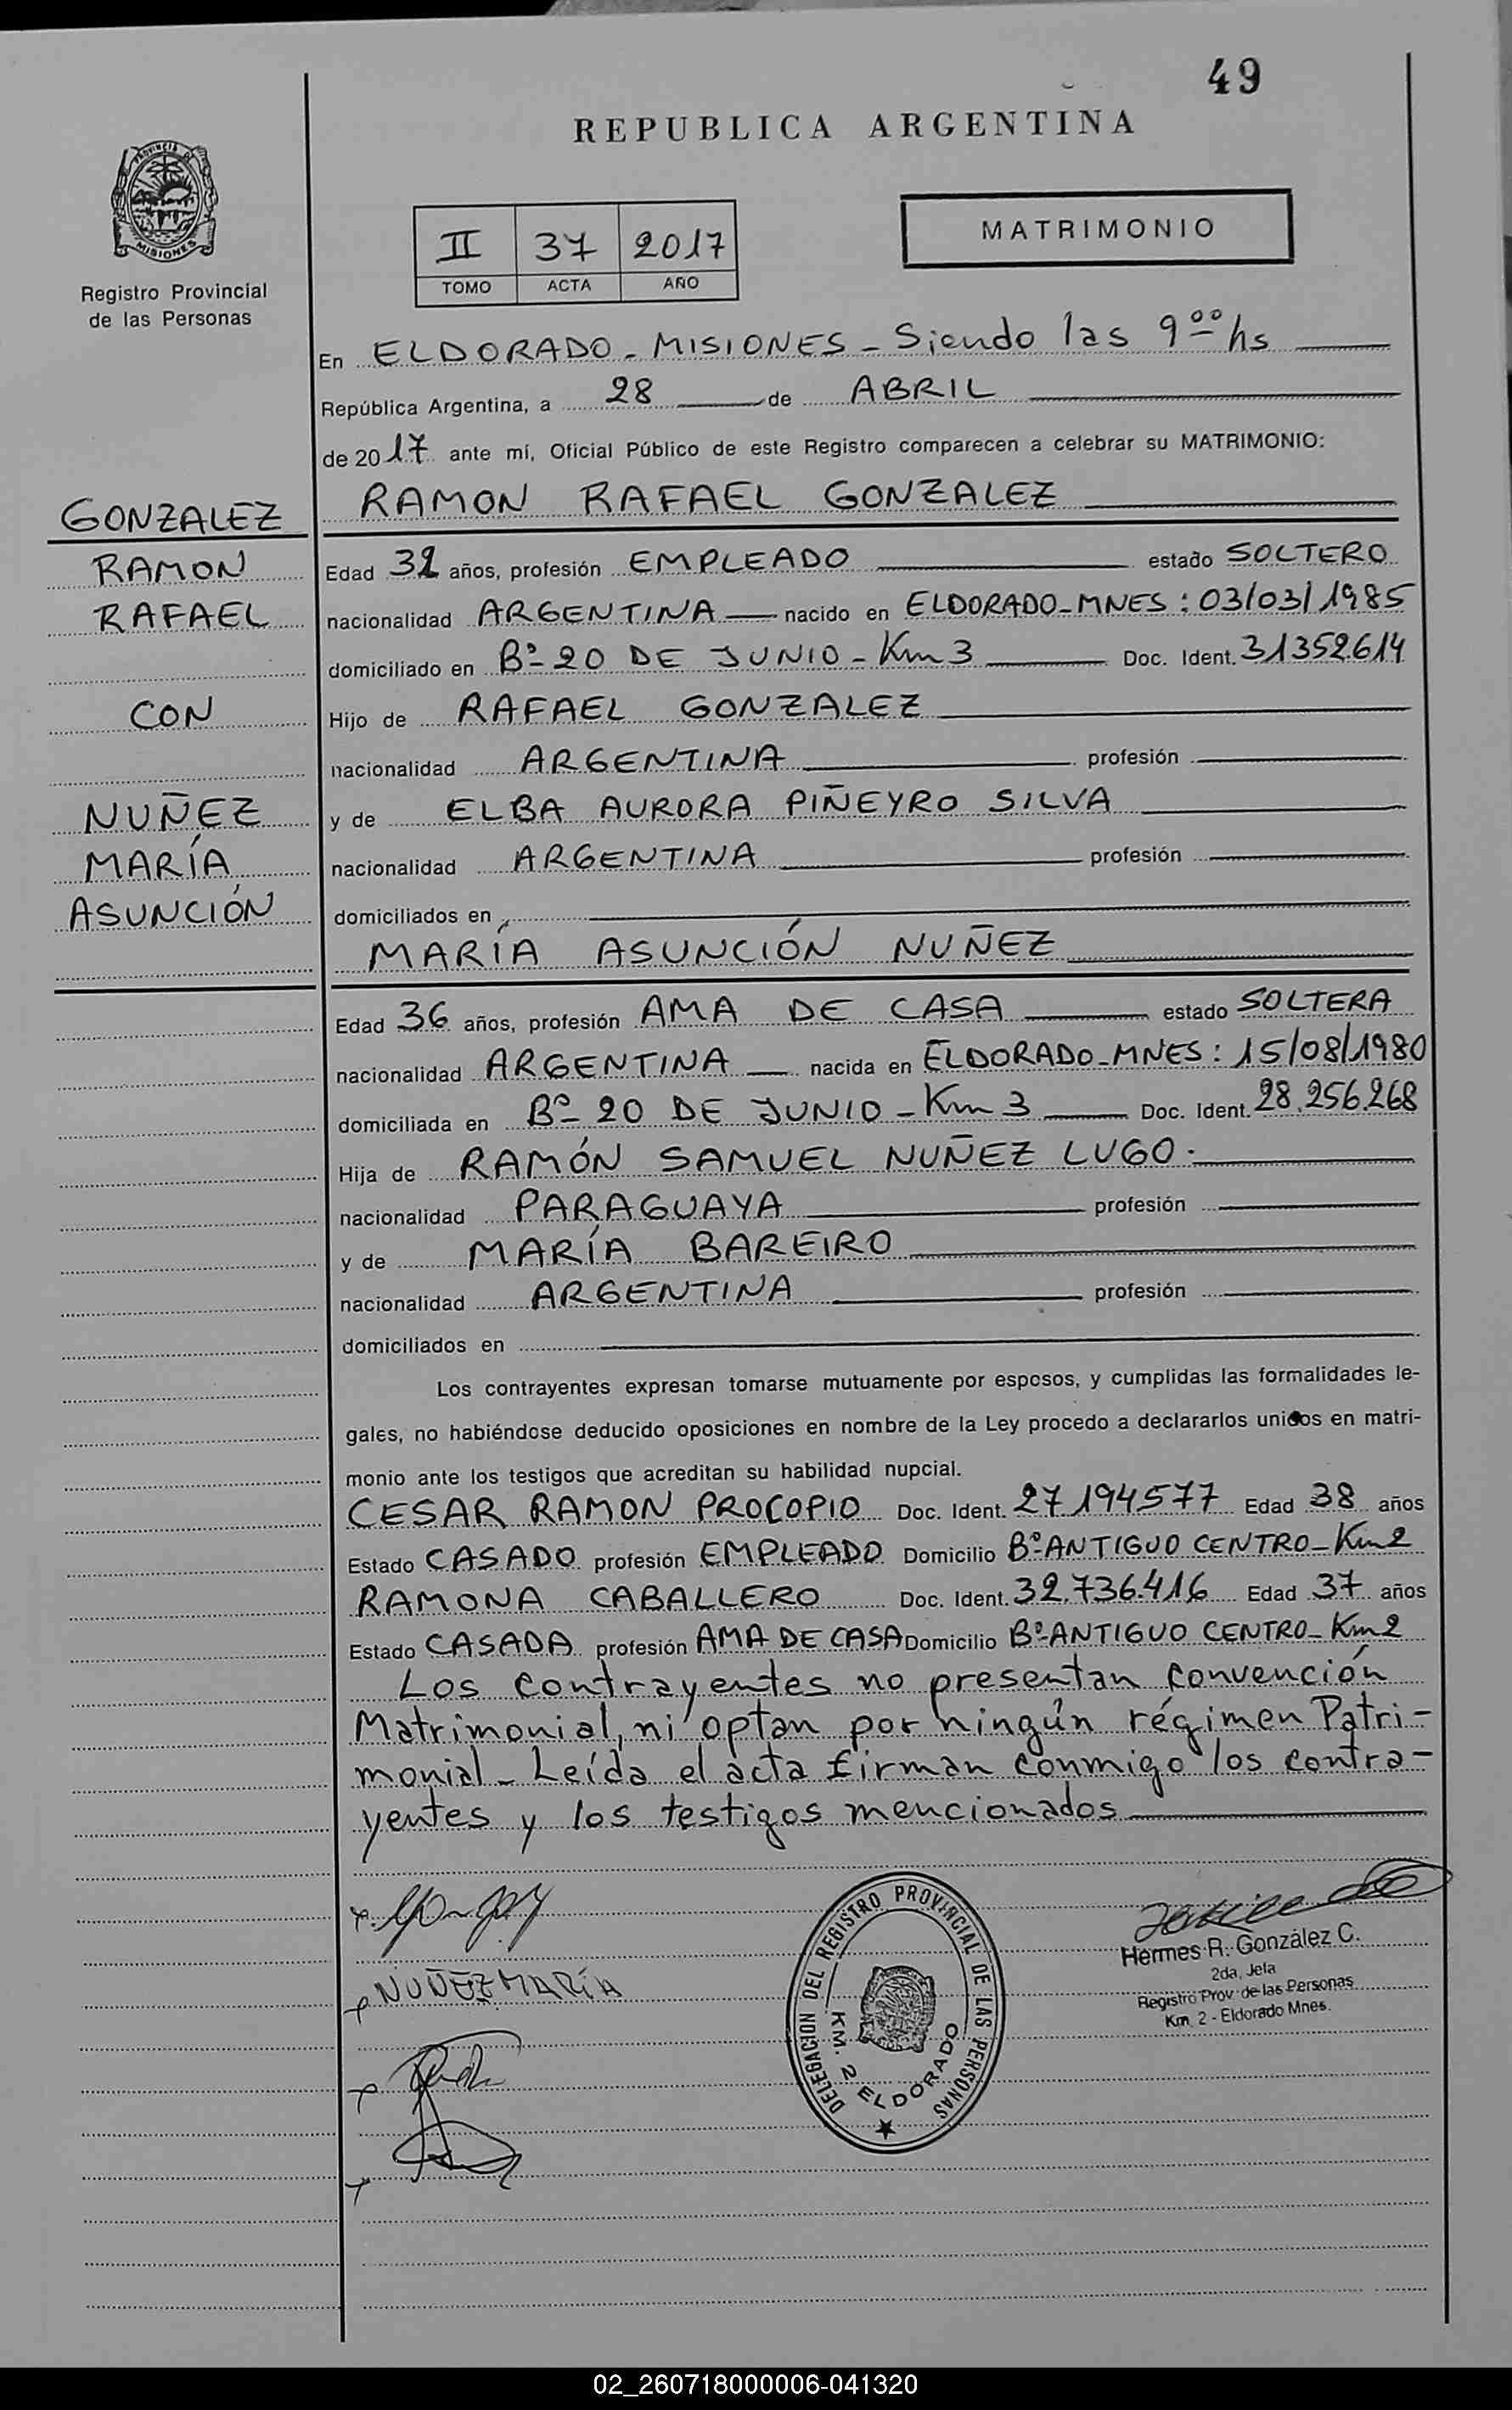 49
REPUBLICA ARGENTINA
PROVINCIA DE MISIONES
Registro Provincial
de las Personas
II 37 2017
TOMO ACTA AÑO
MATRIMONIO
En ELDORADO - MISIONES - Siendo las 9 00 hs
República Argentina, a 28 de ABRIL
de 2017 ante mí, Oficial Público de este Registro comparecen a celebrar su MATRIMONIO:
RAMON RAFAEL GONZALEZ
GONZALEZ
RAMON
RAFAEL
CON
NUÑEZ
MARÍA
ASUNCIÓN
Edad 32 años, profesión EMPLEADO estado SOLTERO
nacionalidad ARGENTINA nacido en ELDORADO-MNES: 03/03/1985
domiciliado en Bº 20 DE JUNIO - Km 3 Doc. Ident. 31352614
Hijo de RAFAEL GONZALEZ
nacionalidad ARGENTINA profesión
y de ELBA AURORA PIÑEYRO SILVA
nacionalidad ARGENTINA profesión
domiciliados en
MARÍA ASUNCIÓN NUÑEZ
Edad 36 años, profesión AMA DE CASA estado SOLTERA
nacionalidad ARGENTINA nacida en ELDORADO-MNES: 15/08/1980
domiciliada en Bº 20 DE JUNIO - Km 3 Doc. Ident. 28.256.268
Hija de RAMÓN SAMUEL NUÑEZ LUGO.
nacionalidad PARAGUAYA profesión
y de MARÍA BAREIRO
nacionalidad ARGENTINA profesión
domiciliados en
Los contrayentes expresan tomarse mutuamente por esposos, y cumplidas las formalidades le-
gales, no habiéndose deducido oposiciones en nombre de la Ley procedo a declararlos unidos en matri-
monio ante los testigos que acreditan su habilidad nupcial.
CESAR RAMON PROCOPIO Doc. Ident. 27194577 Edad 38 años
Estado CASADO profesión EMPLEADO Domicilio Bº ANTIGUO CENTRO - Km 2
RAMONA CABALLERO Doc. Ident. 32.736.416 Edad 37 años
Estado CASADA profesión AMA DE CASA Domicilio Bº ANTIGUO CENTRO - Km 2
Los contrayentes no presentan convención
Matrimonial, ni optan por ningún régimen Patri-
monial - Leída el acta firman conmigo los contra-
yentes y los testigos mencionados
NUÑEZ MARÍA
DELEGACION DEL REGISTRO PROVINCIAL DE LAS PERSONAS
KM. 2 ELDORADO
Hermes R. González C.
2da. Jefa
Registro Prov. de las Personas
Km. 2 - Eldorado Mnes.
02_260718000006-041320